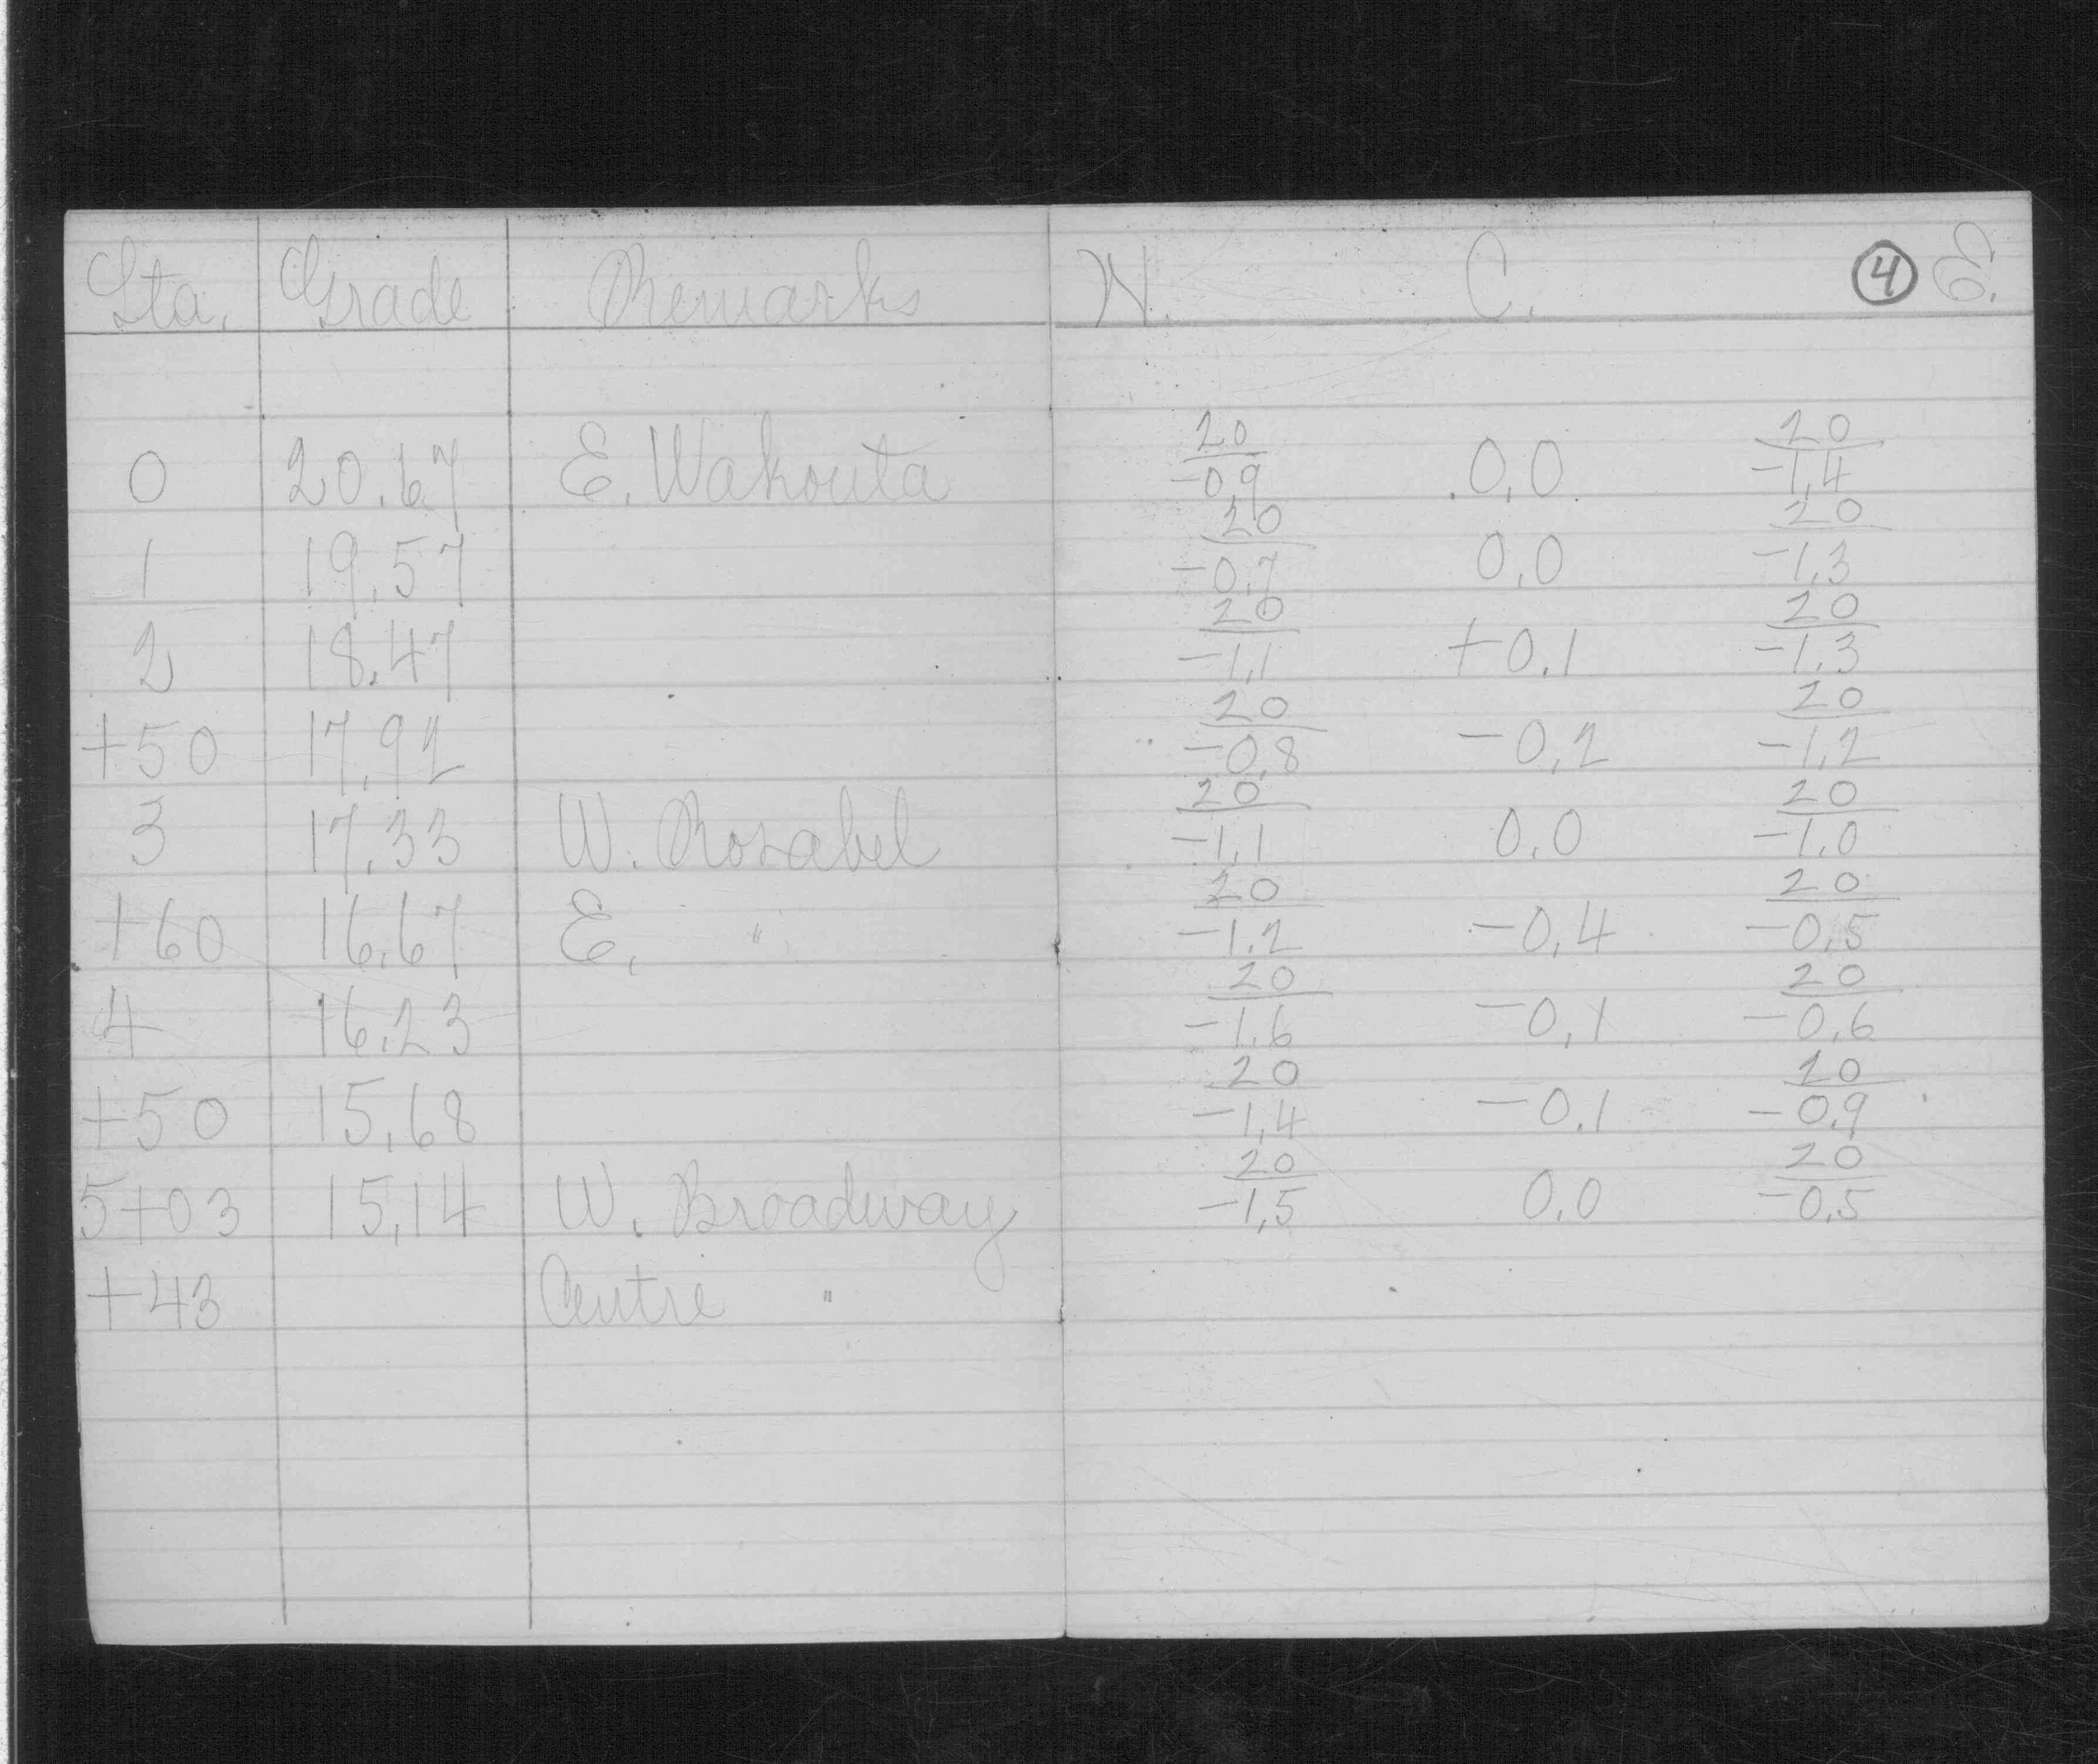 Sta. Grade Remarks N. C. 4 E.
0 20.67 E. Wakouta 20/-0,9 0,0 20/-1,4
1 19.57 20/-0,7 0,0 20/-1,3
2 18.47 20/-1,1 +0.1 20/-1.3
+50 17,92 20/-0,8 -0,2 20/-1,2
3 17.33 W. Rosabel 20/-1,1 0,0 20/-1,0
+60 16,67 E, " 20/-1,2 -0,4 20/-0,5
4 16.23 20/-1.6 -0,1 20/-0,6
+50 15,68 20/-1,4 -0.1 20/-0,9
5+03 15,14 W. Broadway 20/-1,5 0,0 20/-0,5
+43 Centre "